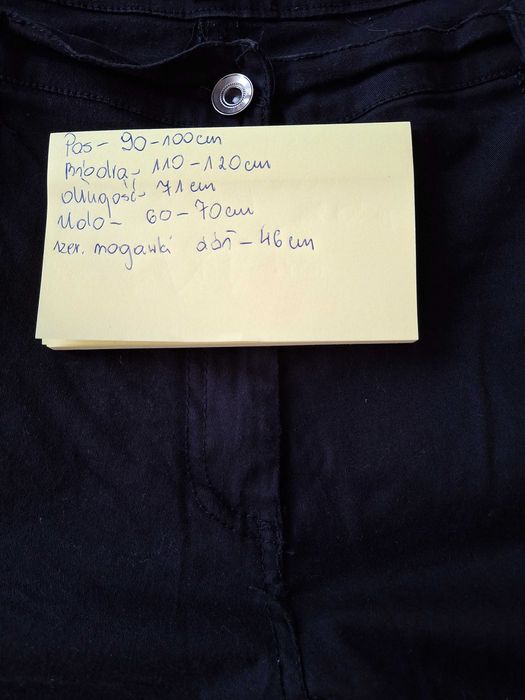 Pas - 90-100cm
Biodra - 110-120cm
długość - 71cm
Udo - 60-70cm
szer. nogawki dół - 46cm